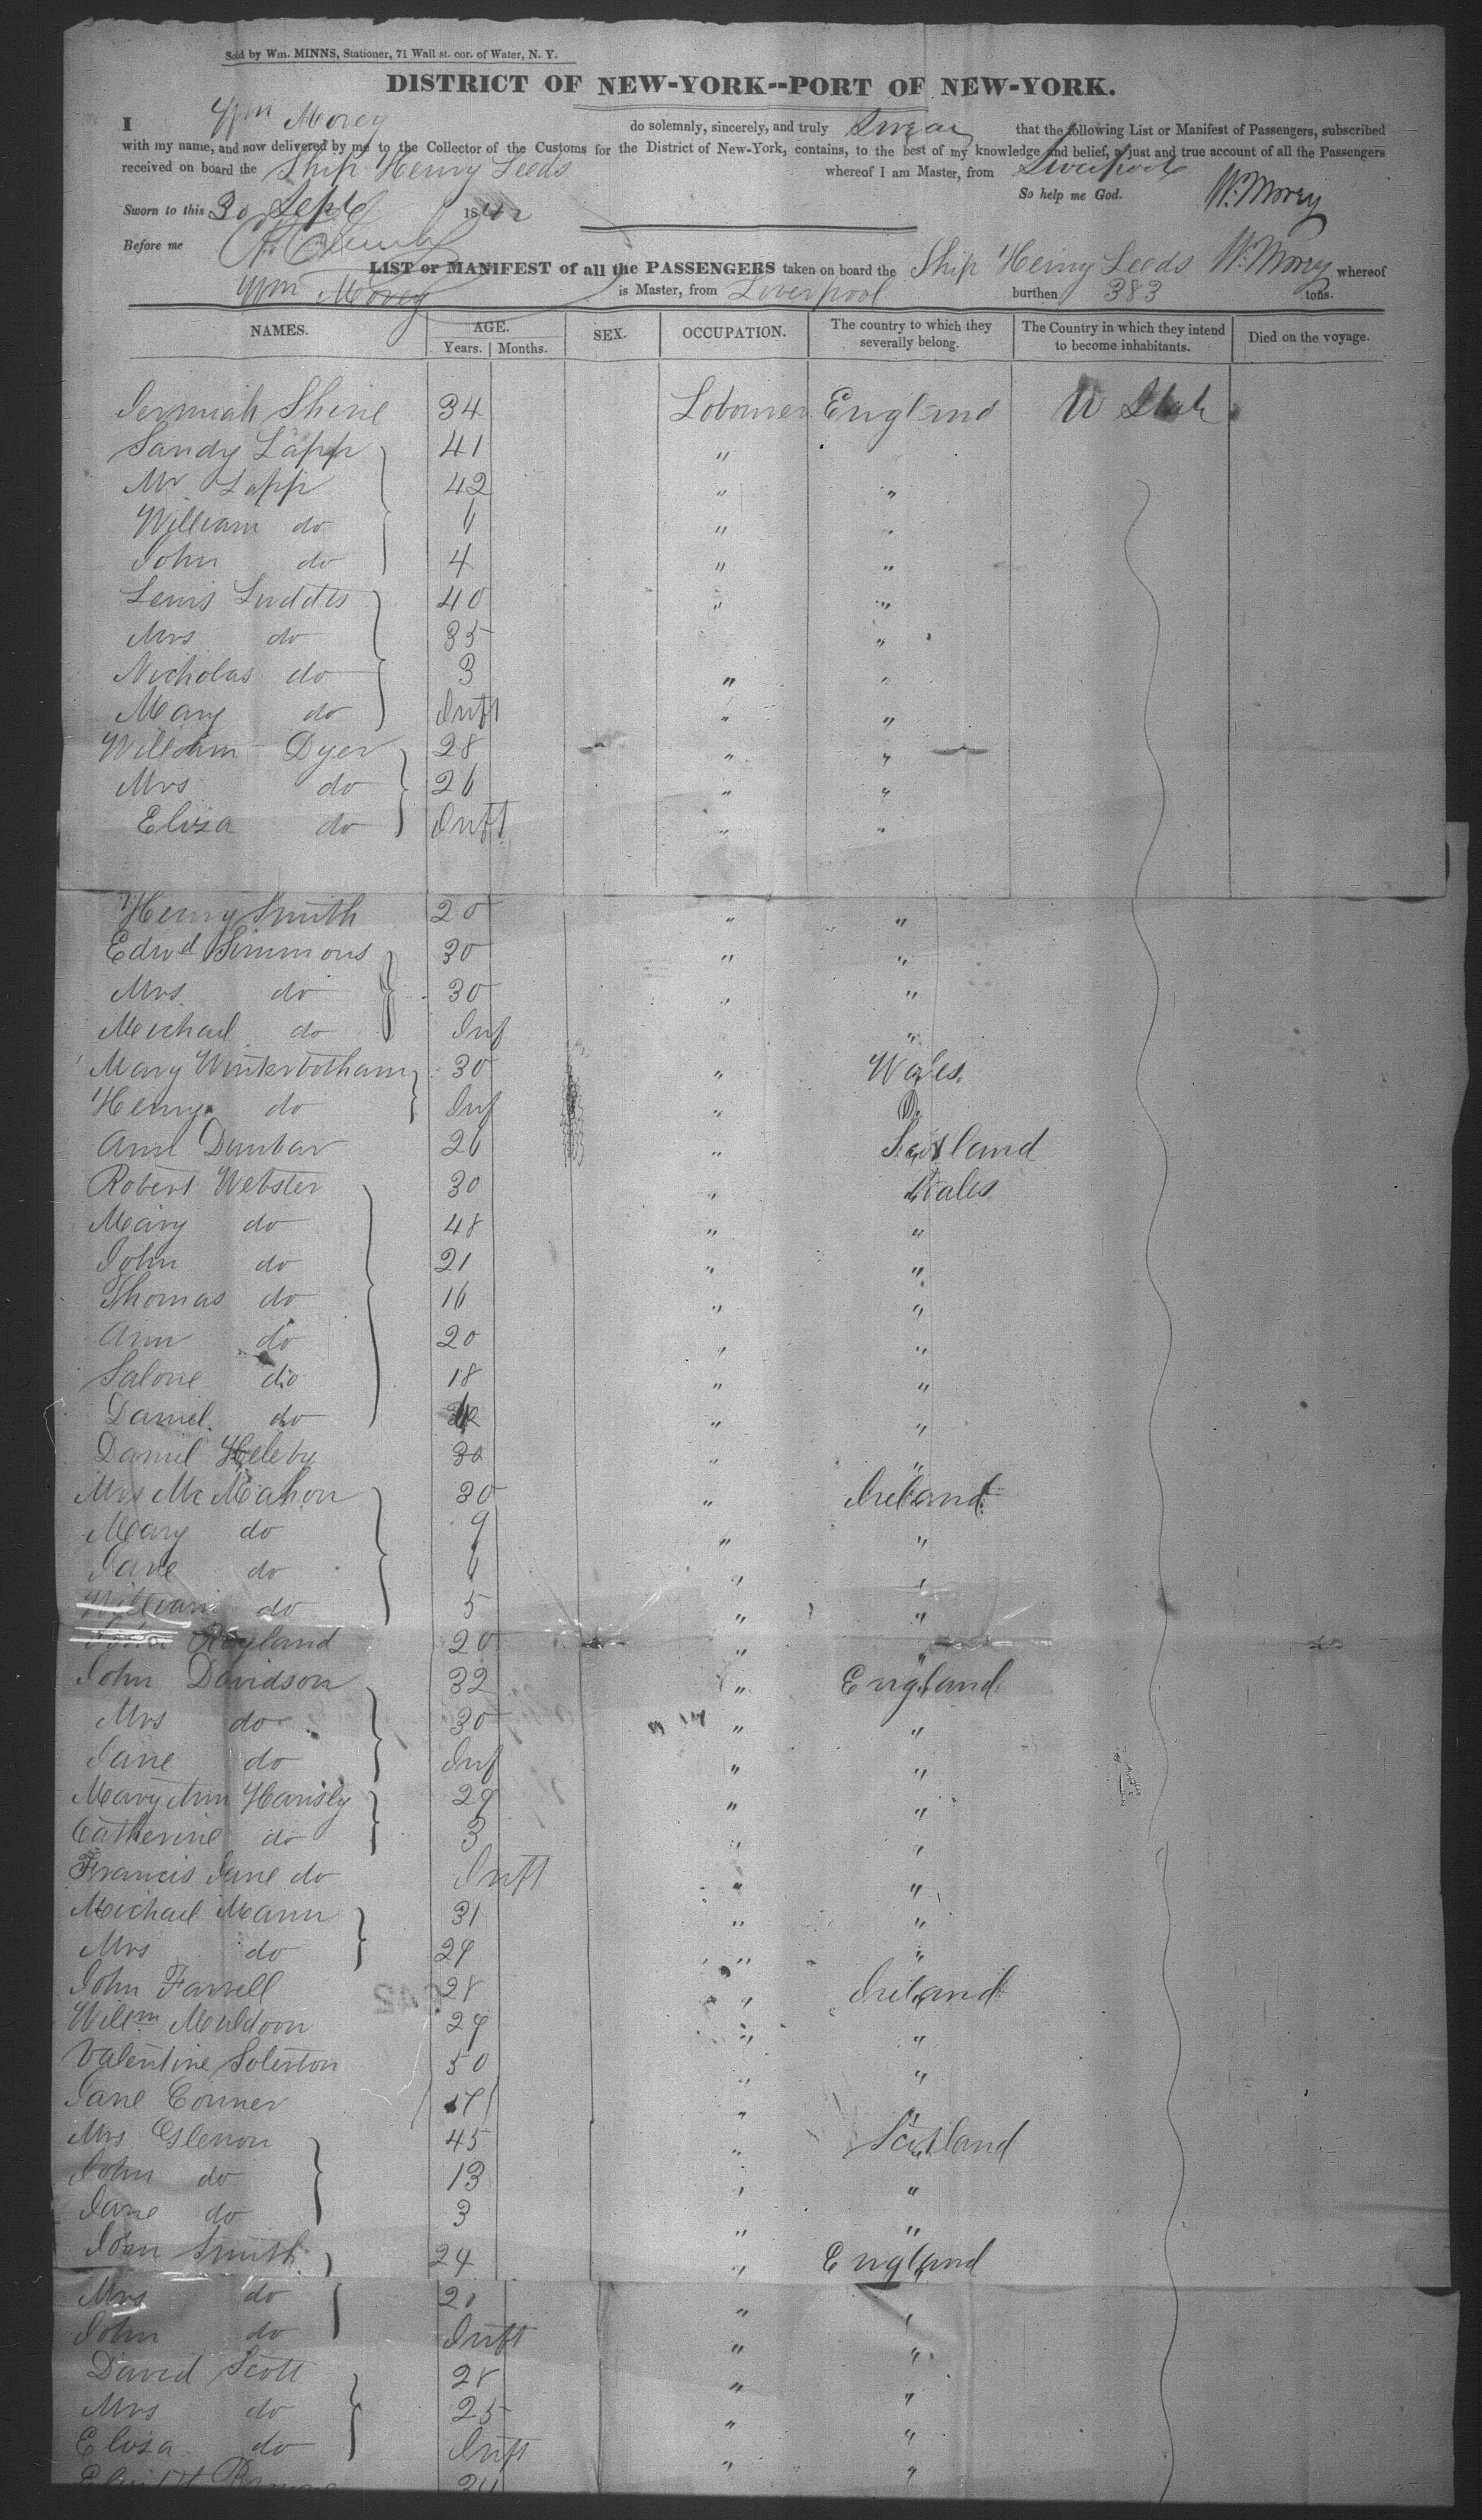 Sold by Wm. MINNS, Stationer, 71 Wall st. cor. of Water, N. Y.
DISTRICT OF NEW-YORK--PORT OF NEW-YORK.
I Wm Morey do solemnly, sincerely, and truly Swear that the following List or Manifest of Passengers, subscribed
with my name, and now delivered by me to the Collector of the Customs for the District of New-York, contains, to the best of my knowledge and belief, a just and true account of all the Passengers
received on board the Ship Henry Leeds whereof I am Master, from Liverpool
So help me God. W. Morey
Sworn to this 30 Sept 1842
Before me
LIST or MANIFEST of all the PASSENGERS taken on board the Ship Henry Leeds W. Morey whereof
Wm Morey is Master, from Liverpool burthen 383 tons.
NAMES. AGE. SEX. OCCUPATION. The country to which they severally belong. The Country in which they intend to become inhabitants. Died on the voyage.
Years. Months.
Jermiah Shine 34 Labourer England U State
Sandy Lapp 41 "
Mr Lapp 42 " "
William do 6 " "
John do 4 " "
Lewis Luddts 40 " "
Mrs do 35 "
Nicholas do 3 " "
Mary do Inft " "
William Dyer 28 " "
Mrs do 26 " "
Eliza do Inft " "
Henry Smith 20 " "
Edwd Simmons 30 " "
Mrs do 30 " "
Meichail do Inf "
Mary Winterbotham 30 " Wales
Henry do Inf " Do
Ann Dunbar 26 " Scotland
Robert Webster 30 " Wales
Mary do 48 " "
John do 21 " "
Thomas do 16 " "
Ann do 20 " "
Salone do 18 " "
Daniel do " "
Daniel Heleby 30 " "
Mrs McMahon 30 " Ireland
Mary do 9 " "
Jane do 6 " "
William do 5 " "
Ryland 20 " "
John Davidson 32 " England
Mrs do 30 " "
Jane do Inf " "
Mary Ann Hansly 29 " "
Catherine do 3 " "
Francis Jane do Inft " "
Michael Mann 31 " "
Mrs do 29 " "
John Farrell 28 " Ireland
Willm Muldoon 29 " "
Valentine Solerton 50 " "
Jane Conner 17 " "
Mrs Glenon 45 " Scotland
John do 13 " "
Jane do 3 " "
John Smith 24 " England
Mrs do " "
John do Inft " "
David Scott 28 " "
Mrs do 25 " "
Eliza do Inft " "